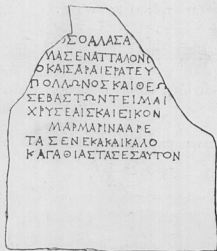 ΣΟΑΛΑΣΑ
ΜΑΣΕΝΑΤΤΑΛΟΝΙ
ΟΚΑΙΣΑΡΑΙΕΡΑΤΕΥ
ΠΟΛΛΩΝΟΣΚΑΙΘΕΩ
ΣΕΒΑΣΤΩΝΤΕΙΜΑΙ
ΧΡΥΣΕΑΙΣΚΑΙΕΙΚΟΝ
ΜΑΡΜΑΡΙΝΑΑΡΕ
ΤΑΣΕΝΕΚΑΚΑΙΚΑΛΟ
ΚΑΓΑΘΙΑΣΤΑΣΕΣΑΥΤΟΝ